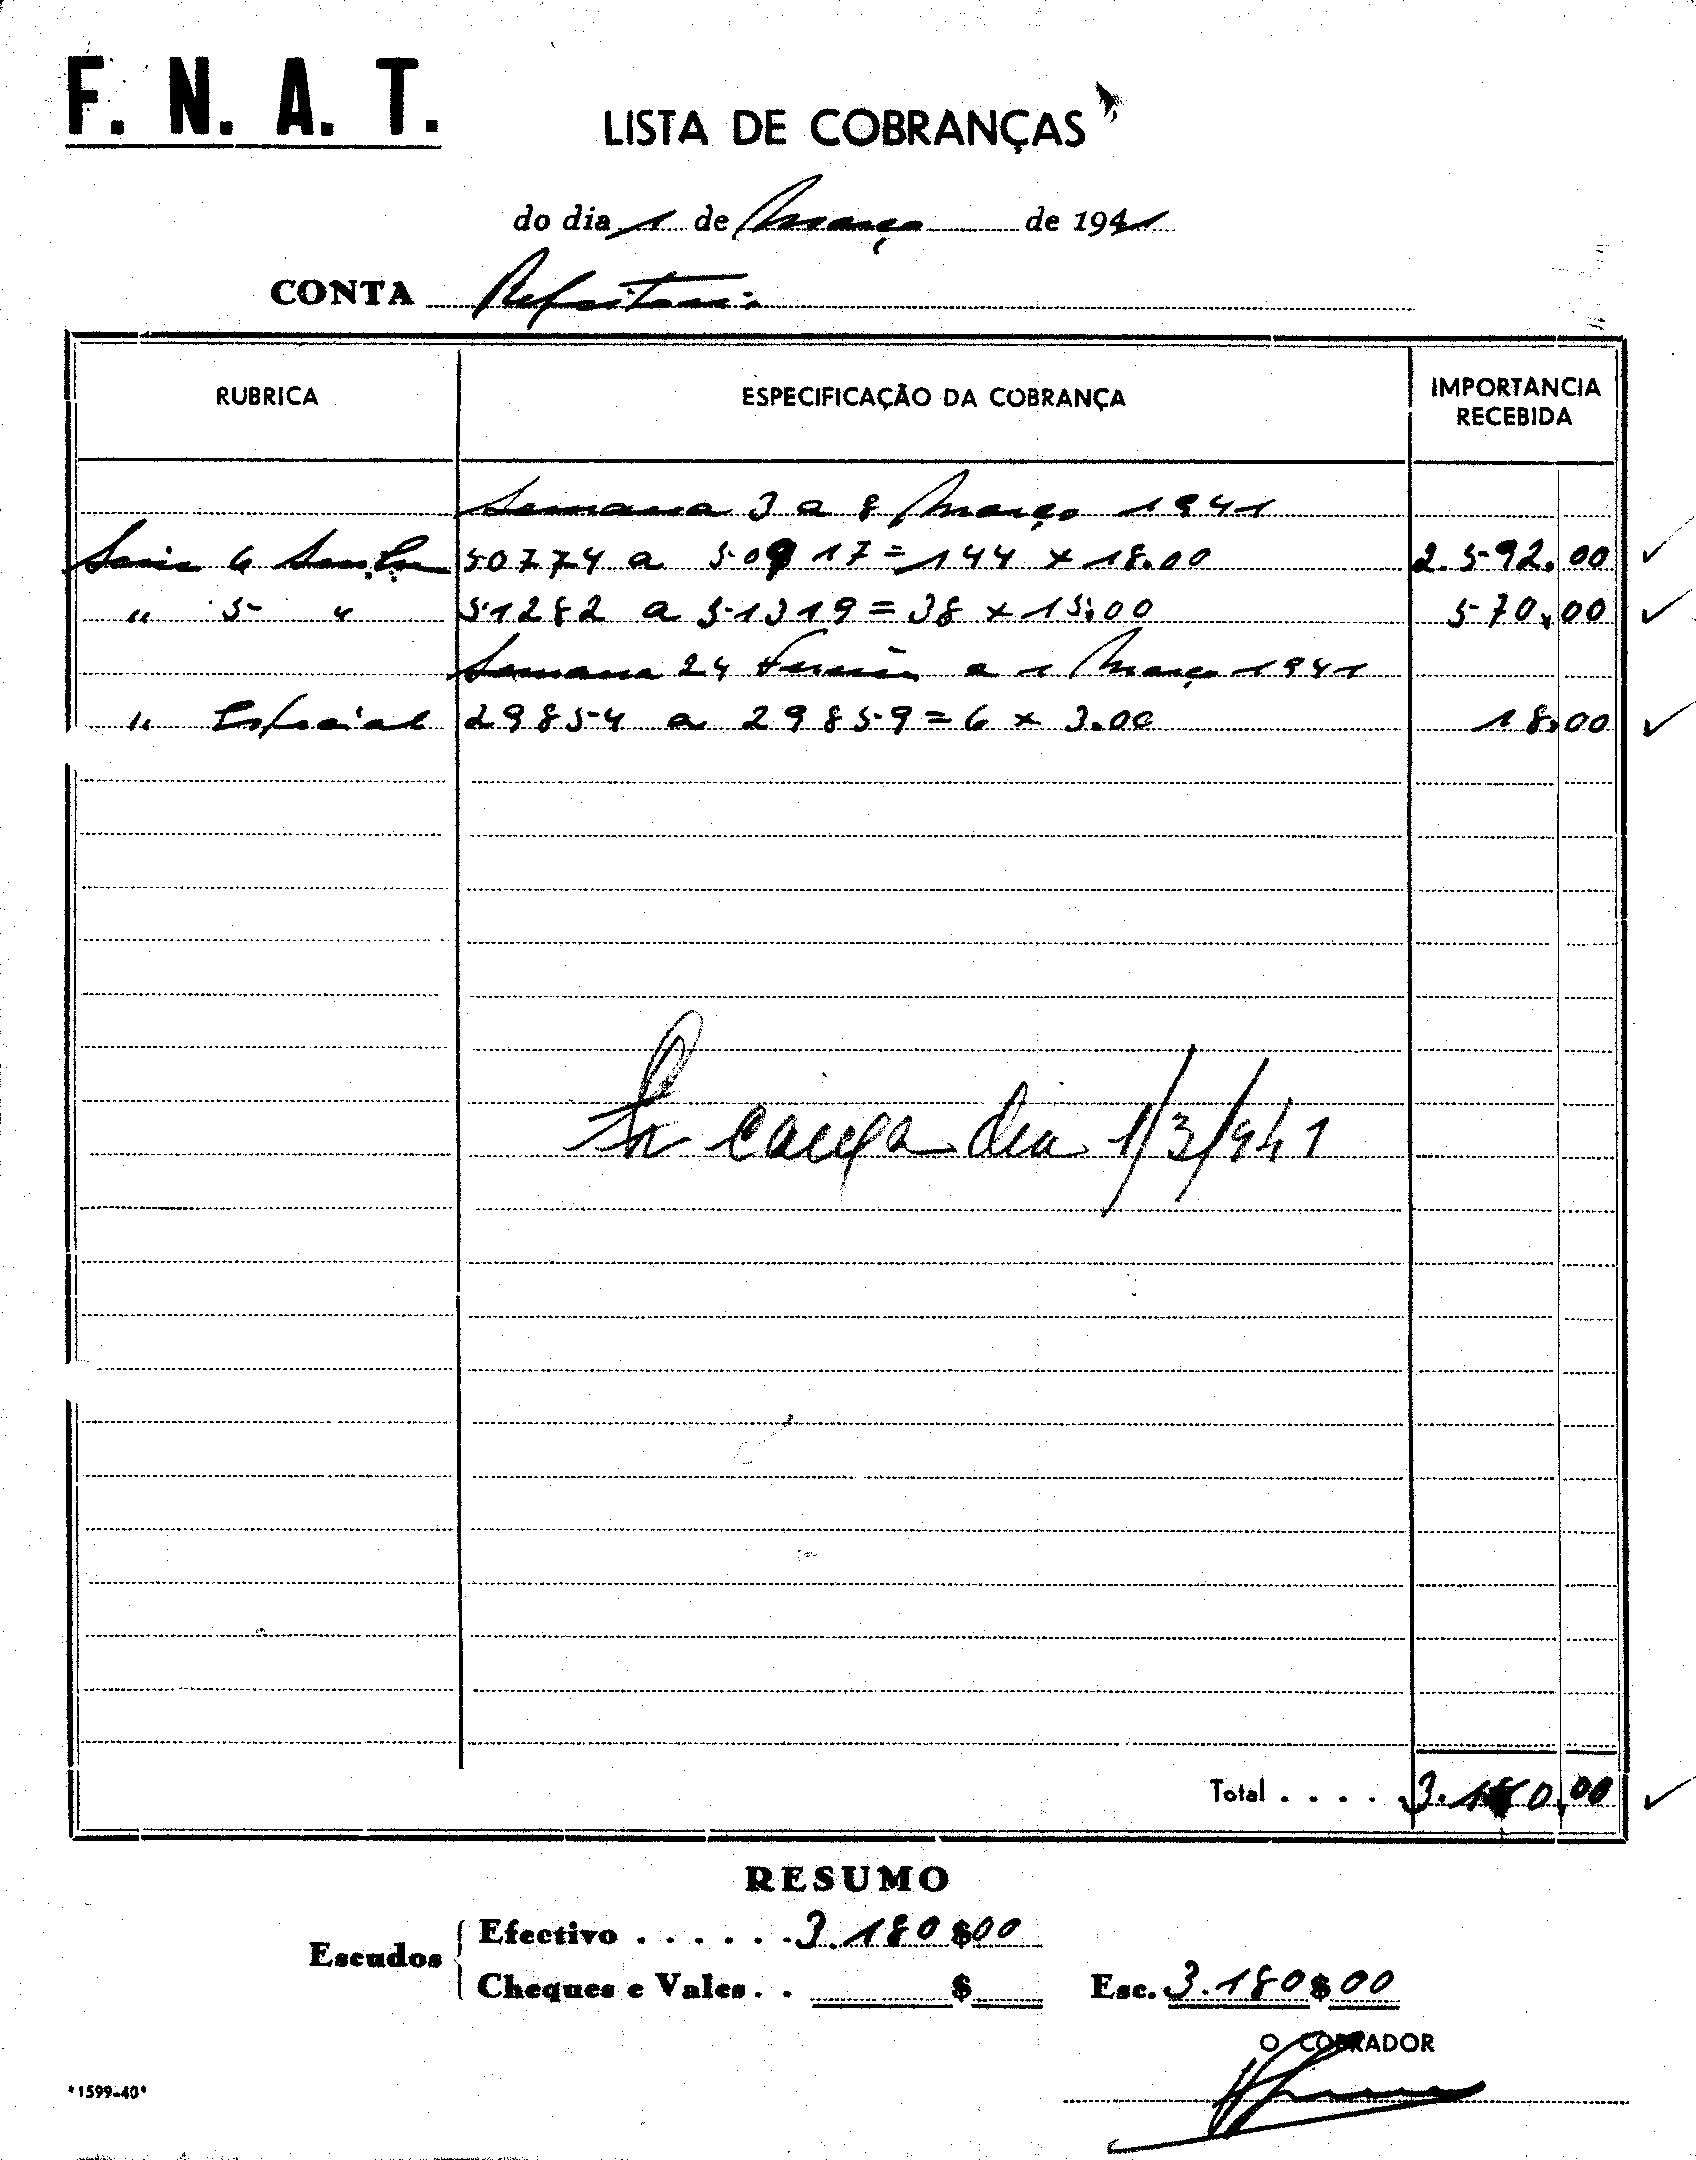 F. N. A. T.
LISTA DE COBRANÇAS
do dia 1 de Março de 1941
CONTA Refeitorio
RUBRICA ESPECIFICAÇÃO DA COBRANÇA IMPORTANCIA RECEBIDA
Semana 3 a 8 Março 1941
Serie 6 50774 a 50917 = 144 x 18.00 2.592.00
" 5 " 51282 a 51319 = 38 x 15.00 570.00
Semana 24 a 1 Março 1941
" Especial 29854 a 29859 = 6 x 3.00 18.00
dia 1/3/941
Total . . . . . 3.180.00
RESUMO
Escudos
Efectivo . . . . . . 3.180$00
Cheques e Vales . . $ Esc. 3.180$00
O COBRADOR
*1599-40*